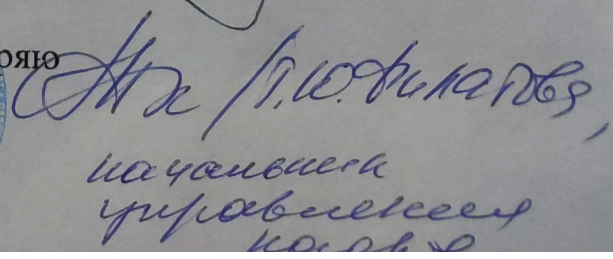 ряю
/Т.Ю. Филатова,
начальник
управления